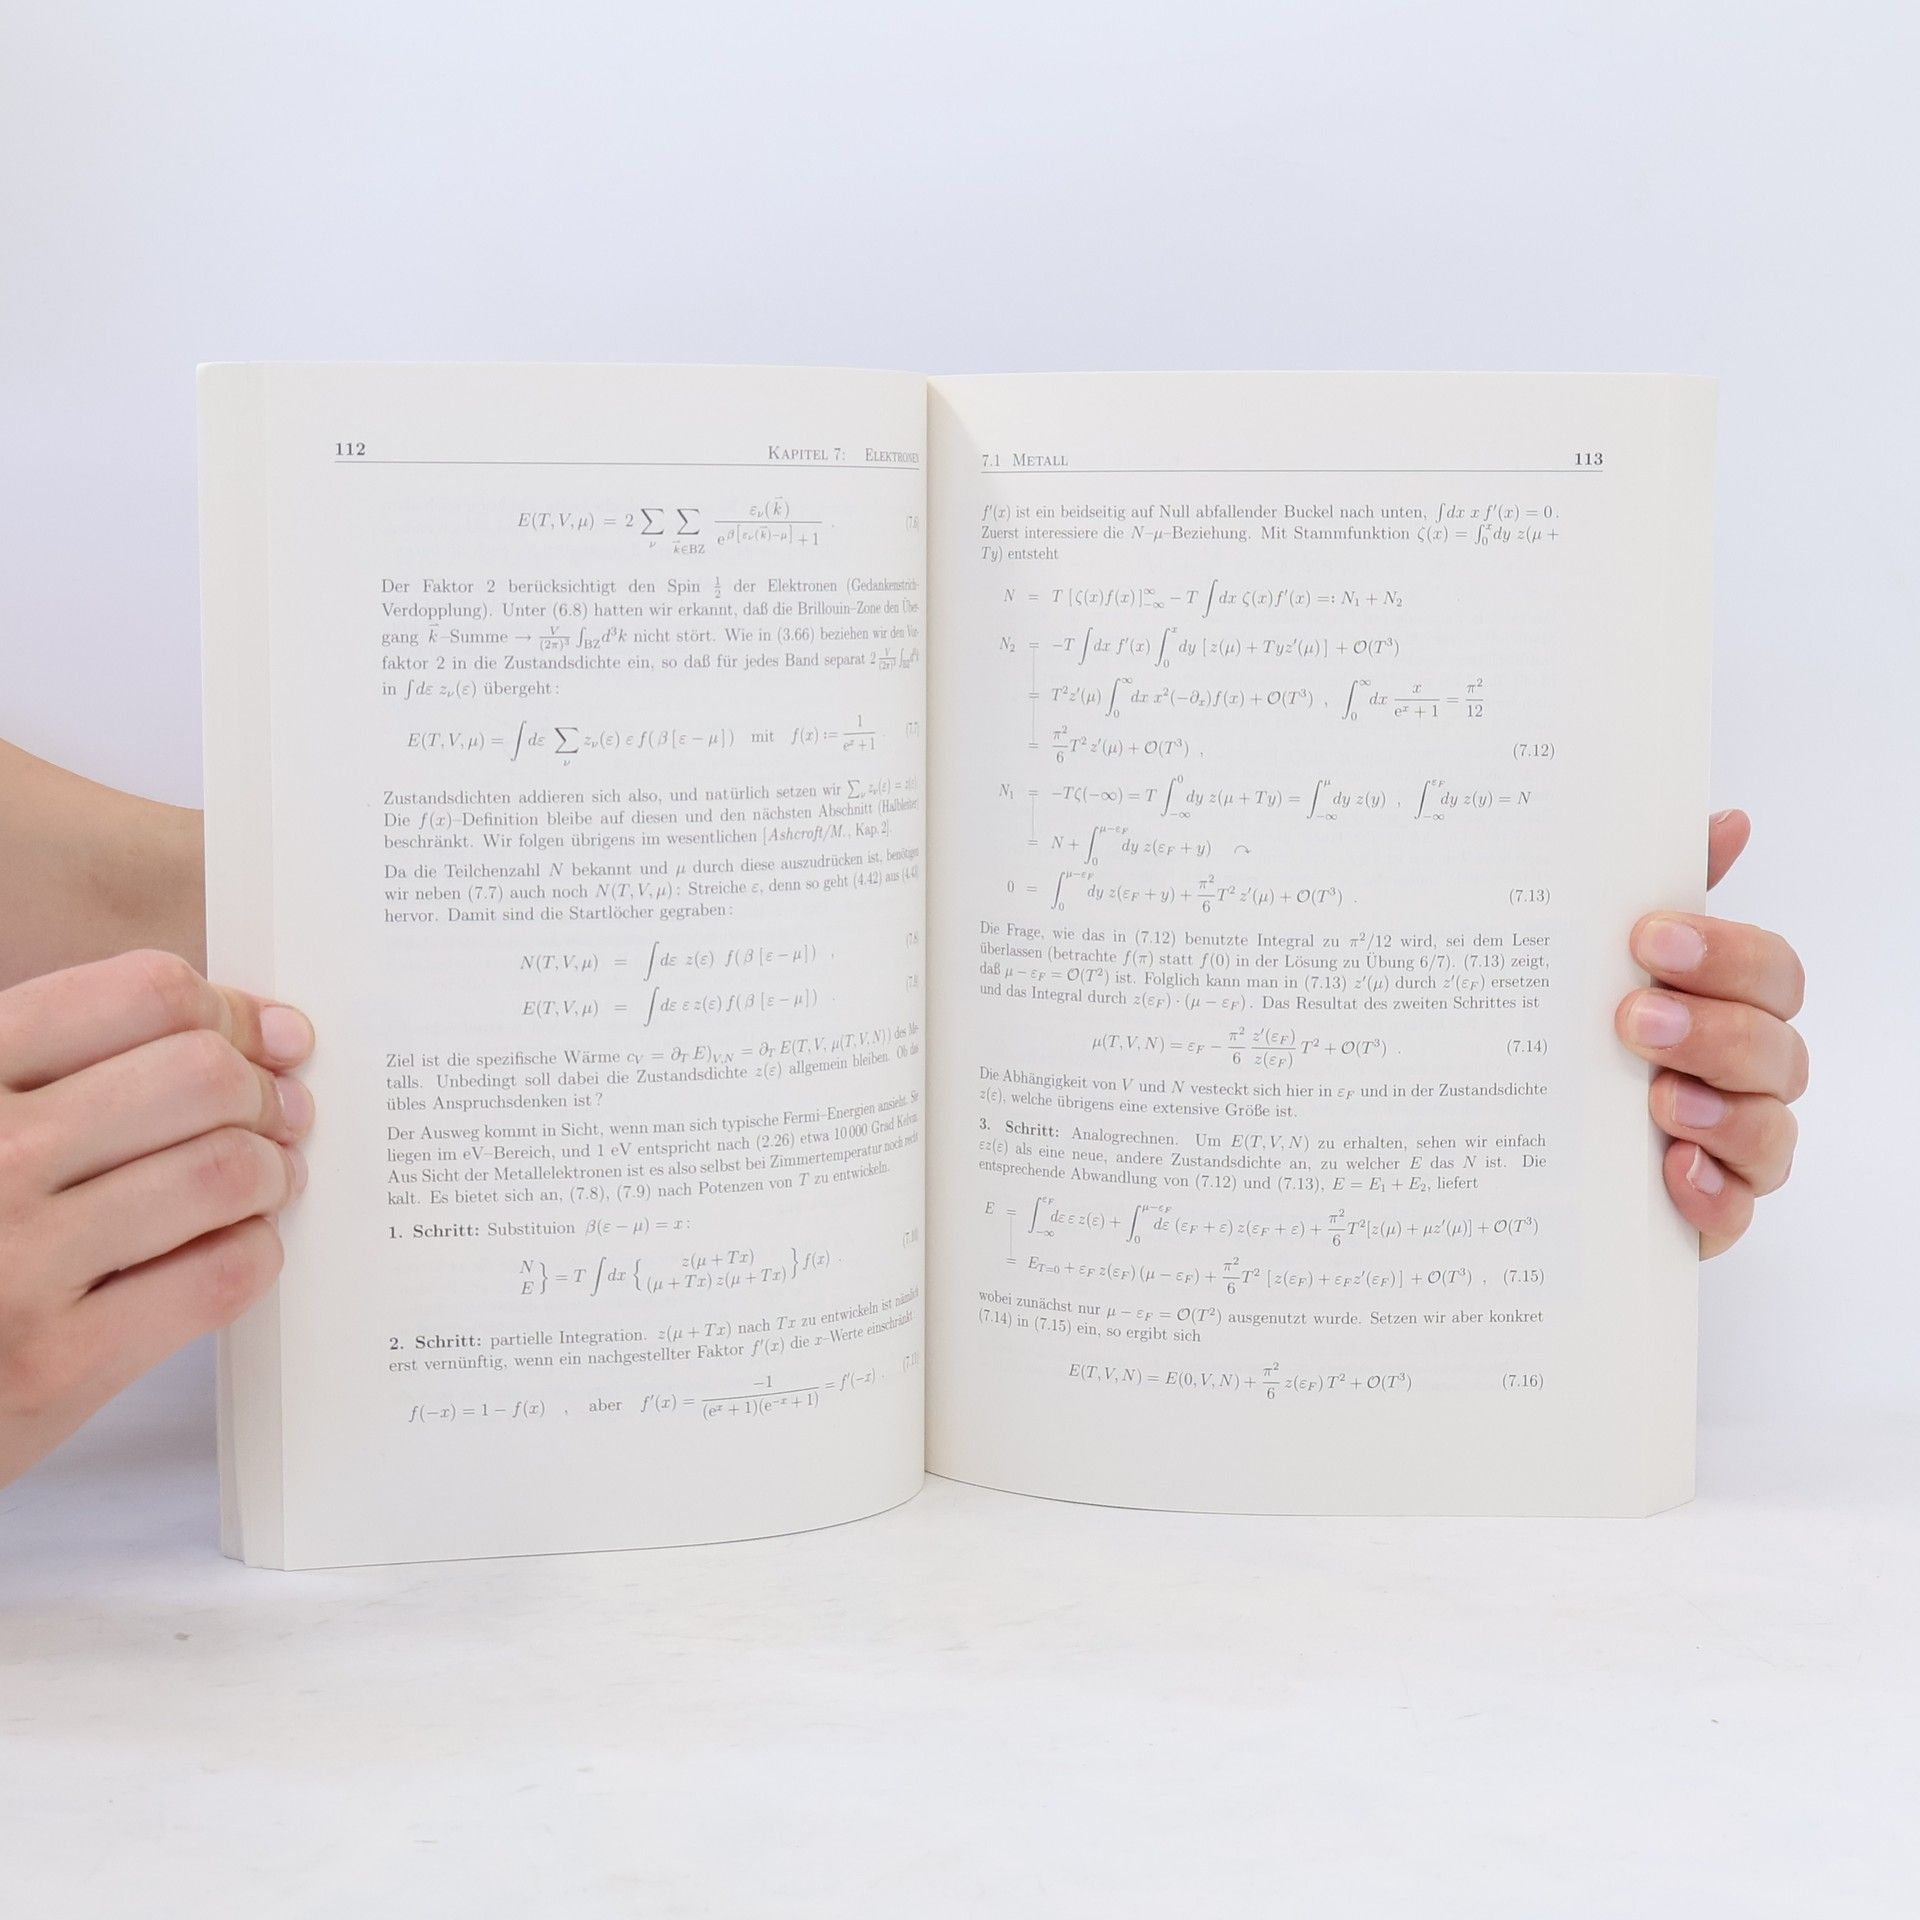 112 KAPITEL 7: ELEKTRONEN
E(T, V, μ) = 2 ∑_ν ∑_{k⃗∈BZ} ε_ν(k⃗) / (e^{β[ε_ν(k⃗)−μ]} + 1) . (7.6)
Der Faktor 2 berücksichtigt den Spin 1/2 der Elektronen (Gedankenstrich-
Verdopplung). Unter (6.8) hatten wir erkannt, daß die Brillouin–Zone den Über-
gang k⃗–Summe → V/(2π)³ ∫_BZ d³k nicht stört. Wie in (3.66) beziehen wir den Vor-
faktor 2 in die Zustandsdichte ein, so daß für jedes Band separat 2 V/(2π)³ ∫_BZ d³k
in ∫dε z_ν(ε) übergeht:
E(T, V, μ) = ∫dε ∑_ν z_ν(ε) ε f(β[ε − μ]) mit f(x) := 1/(e^x + 1) . (7.7)
Zustandsdichten addieren sich also, und natürlich setzen wir ∑_ν z_ν(ε) = z(ε).
Die f(x)–Definition bleibe auf diesen und den nächsten Abschnitt (Halbleiter)
beschränkt. Wir folgen übrigens im wesentlichen [Ashcroft/M., Kap. 2].
Da die Teilchenzahl N bekannt und μ durch diese auszudrücken ist, benötigen
wir neben (7.7) auch noch N(T, V, μ): Streiche ε, denn so geht (4.42) aus (4.43)
hervor. Damit sind die Startlöcher gegraben:
N(T, V, μ) = ∫dε z(ε) f(β[ε − μ]) , (7.8)
E(T, V, μ) = ∫dε ε z(ε) f(β[ε − μ]) . (7.9)
Ziel ist die spezifische Wärme c_V = ∂_T E)_{V,N} = ∂_T E(T, V, μ(T, V, N)) des Me-
talls. Unbedingt soll dabei die Zustandsdichte z(ε) allgemein bleiben. Ob das
übles Anspruchsdenken ist?
Der Ausweg kommt in Sicht, wenn man sich typische Fermi–Energien ansieht. Sie
liegen im eV–Bereich, und 1 eV entspricht nach (2.26) etwa 10 000 Grad Kelvin.
Aus Sicht der Metallelektronen ist es also selbst bei Zimmertemperatur noch recht
kalt. Es bietet sich an, (7.8), (7.9) nach Potenzen von T zu entwickeln.
1. Schritt: Substituion β(ε − μ) = x:
N E } = T ∫dx { z(μ + Tx) (μ + Tx) z(μ + Tx) } f(x) . (7.10)
2. Schritt: partielle Integration. z(μ + Tx) nach Tx zu entwickeln ist nämlich
erst vernünftig, wenn ein nachgestellter Faktor f′(x) die x–Werte einschränkt:
f(−x) = 1 − f(x) , aber f′(x) = −1 / ((e^x + 1)(e^{−x} + 1)) = f′(−x) . (7.11)
7.1 METALL 113
f′(x) ist ein beidseitig auf Null abfallender Buckel nach unten, ∫dx x f′(x) = 0.
Zuerst interessiere die N–μ–Beziehung. Mit Stammfunktion ζ(x) = ∫_0^x dy z(μ +
Ty) entsteht
N = T [ζ(x)f(x)]_{−∞}^{∞} − T ∫dx ζ(x)f′(x) =: N₁ + N₂
N₂ = −T ∫dx f′(x) ∫_0^x dy [z(μ) + Tyz′(μ)] + O(T³)
= T²z′(μ) ∫_0^∞ dx x²(−∂_x)f(x) + O(T³) , ∫_0^∞ dx x/(e^x + 1) = π²/12
= π²/6 T² z′(μ) + O(T³) , (7.12)
N₁ = −Tζ(−∞) = T ∫_{−∞}^0 dy z(μ + Ty) = ∫_{−∞}^μ dy z(y) , ∫_{−∞}^{ε_F} dy z(y) = N
= N + ∫_0^{μ−ε_F} dy z(ε_F + y) ↷
0 = ∫_0^{μ−ε_F} dy z(ε_F + y) + π²/6 T² z′(μ) + O(T³) . (7.13)
Die Frage, wie das in (7.12) benutzte Integral zu π²/12 wird, sei dem Leser
überlassen (betrachte f(π) statt f(0) in der Lösung zu Übung 6/7). (7.13) zeigt,
daß μ − ε_F = O(T²) ist. Folglich kann man in (7.13) z′(μ) durch z′(ε_F) ersetzen
und das Integral durch z(ε_F) · (μ − ε_F). Das Resultat des zweiten Schrittes ist
μ(T, V, N) = ε_F − π²/6 z′(ε_F)/z(ε_F) T² + O(T³) . (7.14)
Die Abhängigkeit von V und N versteckt sich hier in ε_F und in der Zustandsdichte
z(ε), welche übrigens eine extensive Größe ist.
3. Schritt: Analogrechnen. Um E(T, V, N) zu erhalten, sehen wir einfach
εz(ε) als eine neue, andere Zustandsdichte an, zu welcher E das N ist. Die
entsprechende Abwandlung von (7.12) und (7.13), E = E₁ + E₂, liefert
E = ∫_{−∞}^{ε_F} dε ε z(ε) + ∫_0^{μ−ε_F} dε (ε_F + ε) z(ε_F + ε) + π²/6 T²[z(μ) + μz′(μ)] + O(T³)
= E_{T=0} + ε_F z(ε_F) (μ − ε_F) + π²/6 T² [z(ε_F) + ε_F z′(ε_F)] + O(T³) , (7.15)
wobei zunächst nur μ − ε_F = O(T²) ausgenutzt wurde. Setzen wir aber konkret
(7.14) in (7.15) ein, so ergibt sich
E(T, V, N) = E(0, V, N) + π²/6 z(ε_F) T² + O(T³) (7.16)